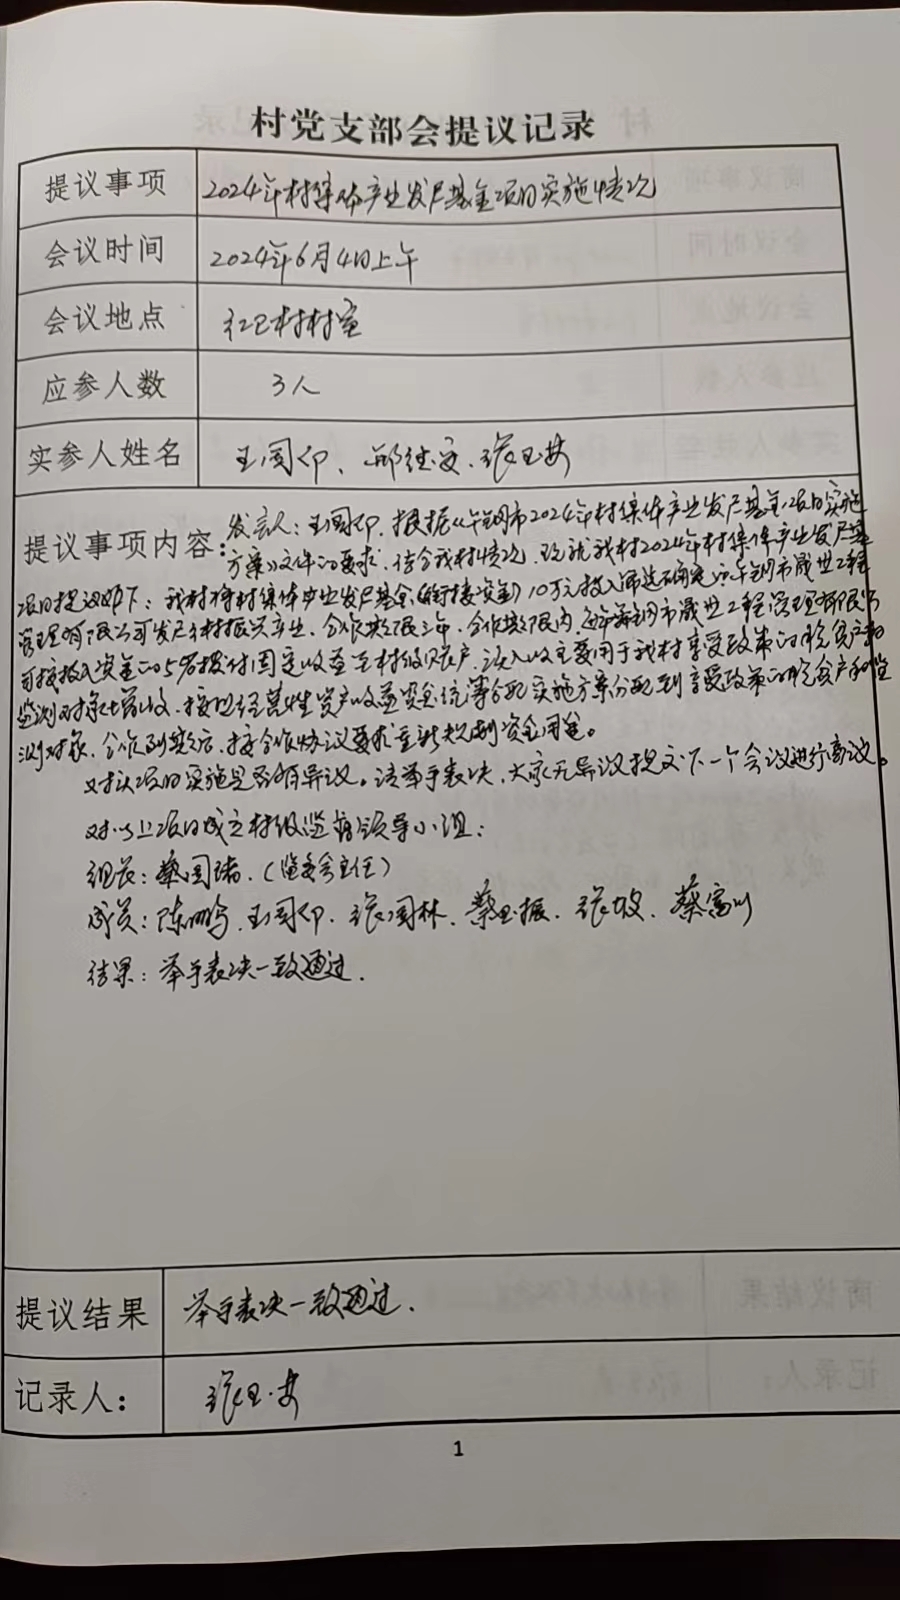 村党支部会提议记录
提议事项 2024年村集体产业发展基金项目实施情况
会议时间 2024年6月4日上午
会议地点 红卫村村室
应参人数 3人
实参人姓名 王国印、邢德安、张玉英
提议事项内容: 发言人:王国印,根据《舞钢市2024年村集体产业发展基金项目实施
方案》文件的要求,结合我村情况,现就我村2024年村集体产业发展基金
项目提议如下:我村将村集体产业发展基金(衔接资金)10万元投入 舞钢市晟世工程
管理有限公司发展乡村振兴产业,合作期限三年,合作期限内,每年舞钢市晟世工程管理有限公
司按投入资金的5%拨付固定收益至村级账户,该收入主要用于我村享受政策的脱贫户和
监测对象增收,按照经营性资产收益资金统筹分配实施方案分配到享受政策的脱贫户和监
测对象,合作到期后,按合作协议要求重新规划资金用途。
对于项目实施是否有异议。请举手表决,大家无异议提交下一个会议进行商议。
对以上项目成立村级监督领导小组:
组长:蔡国瑞.(监委会主任)
成员:陈鹏 王国印、张国林、蔡玉振、张 蔡富川
结果:举手表决一致通过.
提议结果 举手表决一致通过.
记录人: 张玉英
1